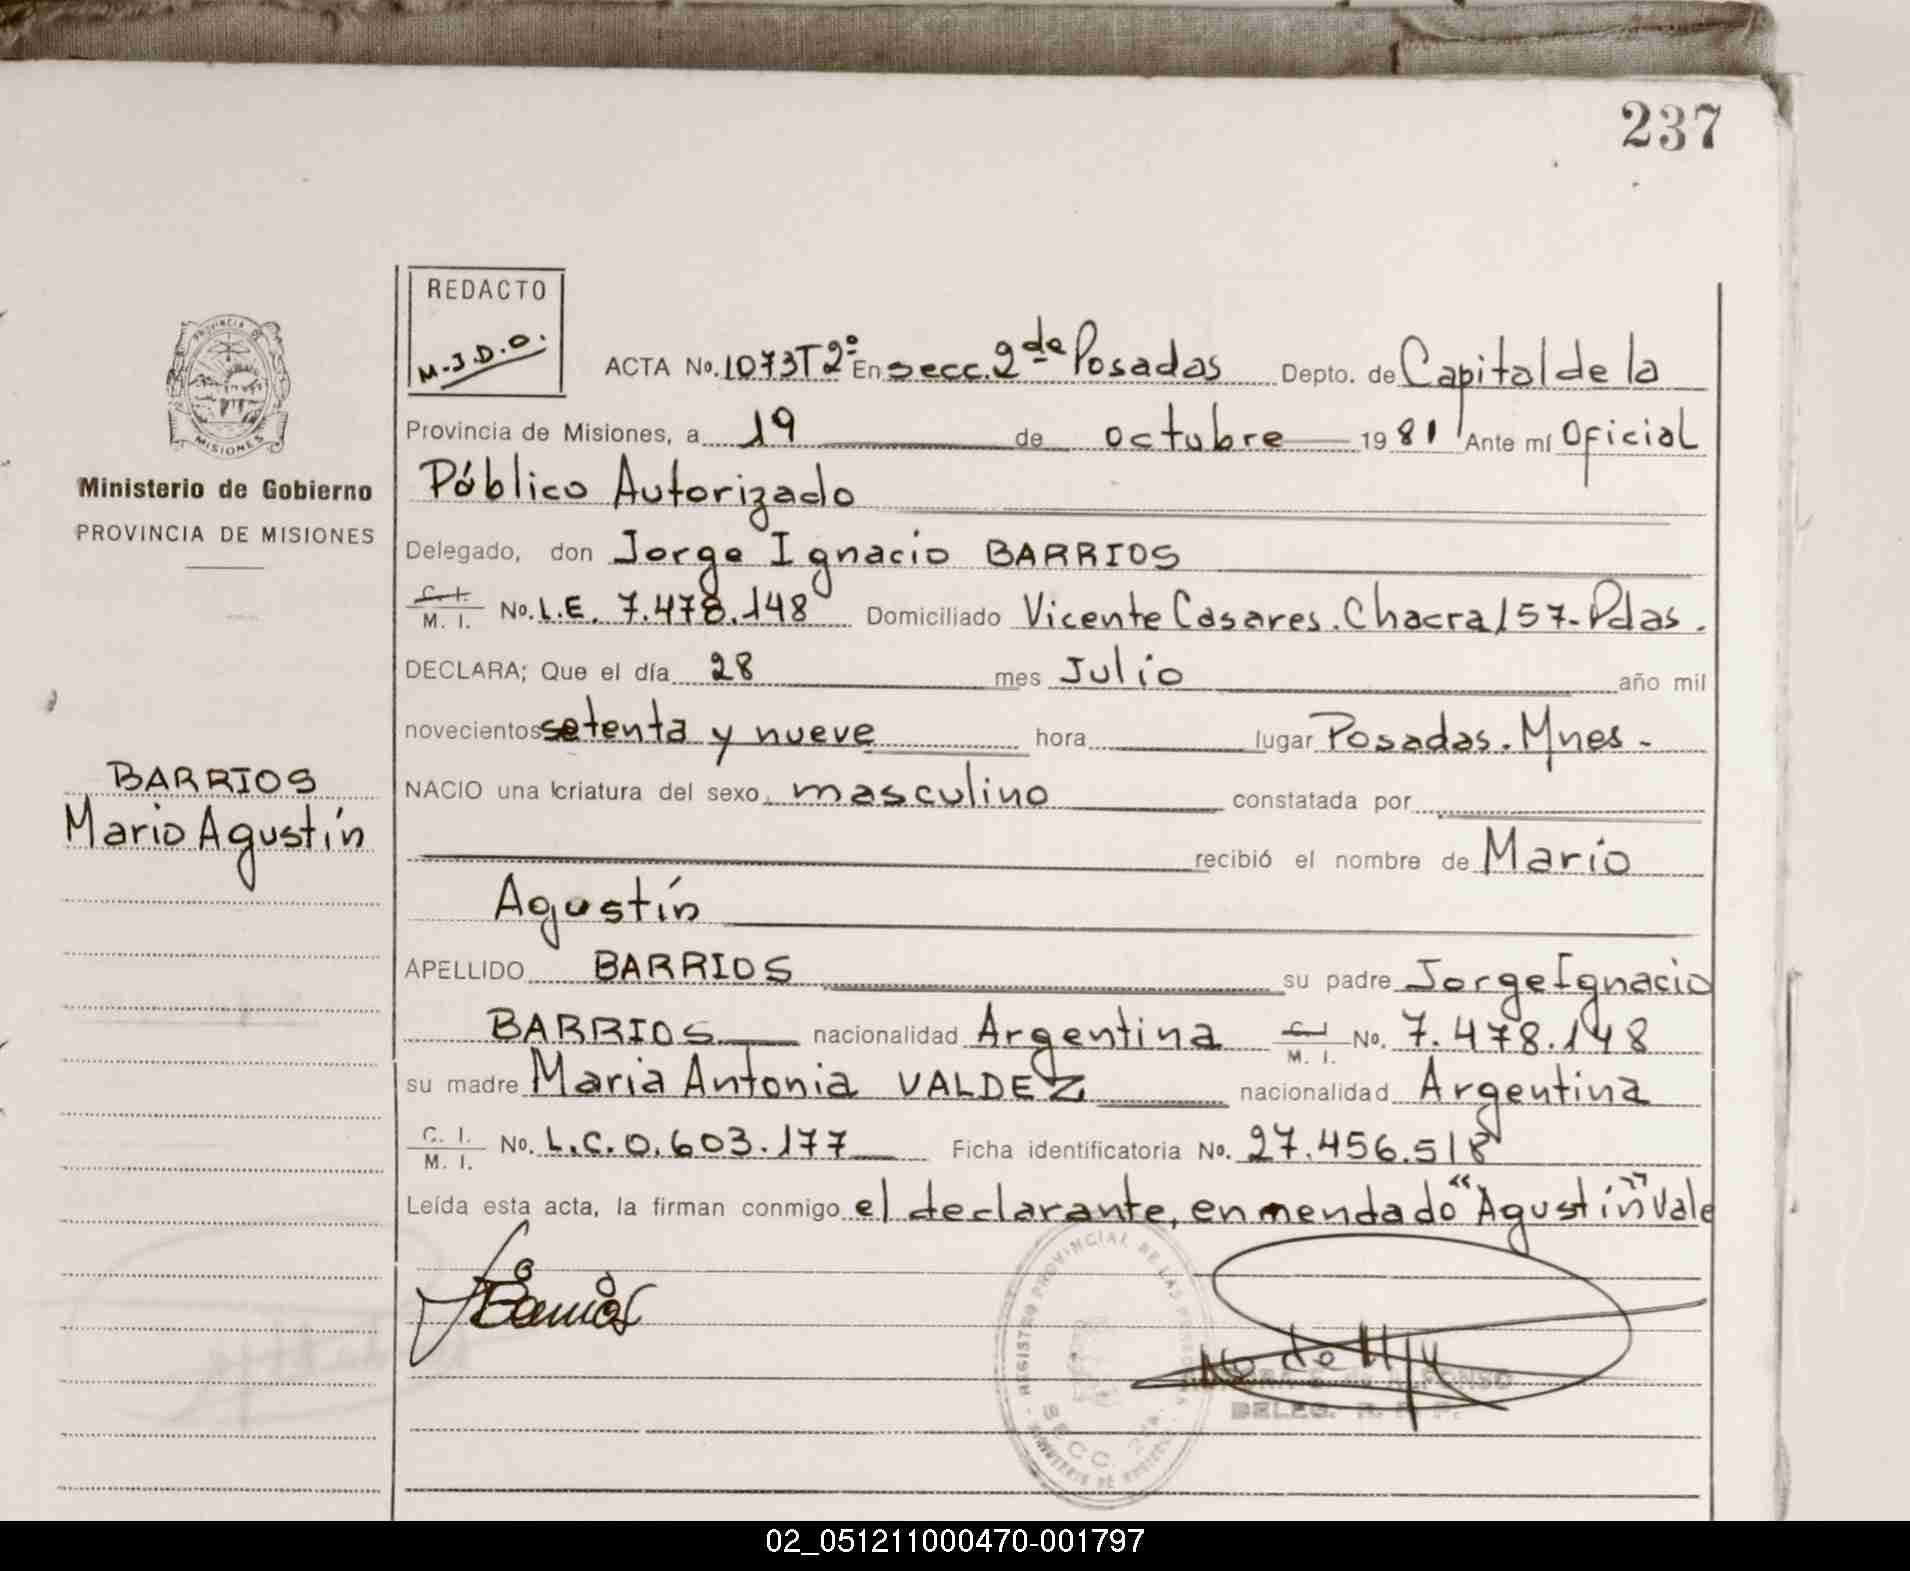 237
REDACTO
M.J.D.O.
ACTA No. 1073 T2º En secc. 2da Posadas Depto. de Capital de la
Provincia de Misiones, a 19 de octubre 1981 Ante mí Oficial
Público Autorizado
Delegado, don Jorge Ignacio BARRIOS
C. I. M. I. No. L.E. 7.478.148 Domiciliado Vicente Casares. Chacra 157- Pdas.
DECLARA; Que el día 28 mes Julio año mil
novecientos setenta y nueve hora lugar Posadas. Mnes-
NACIO una criatura del sexo, masculino constatada por
recibió el nombre de Mario
Agustín
APELLIDO BARRIOS su padre Jorge Ignacio
BARRIOS nacionalidad Argentina C. I. M. I. No. 7.478.148
su madre Maria Antonia VALDEZ nacionalidad Argentina
C. I. M. I. No. L.C. 0.603.177 Ficha identificatoria No. 27.456.518
Leída esta acta, la firman conmigo el declarante, enmendado "Agustín" Vale
JBarrios
REGISTRO PROVINCIAL DE LAS PERSONAS
SECC. 2da.
ALFONSO
DELEG. R. P. P.
PROVINCIA DE
MISIONES
Ministerio de Gobierno
PROVINCIA DE MISIONES
BARRIOS
Mario Agustín
02_051211000470-001797